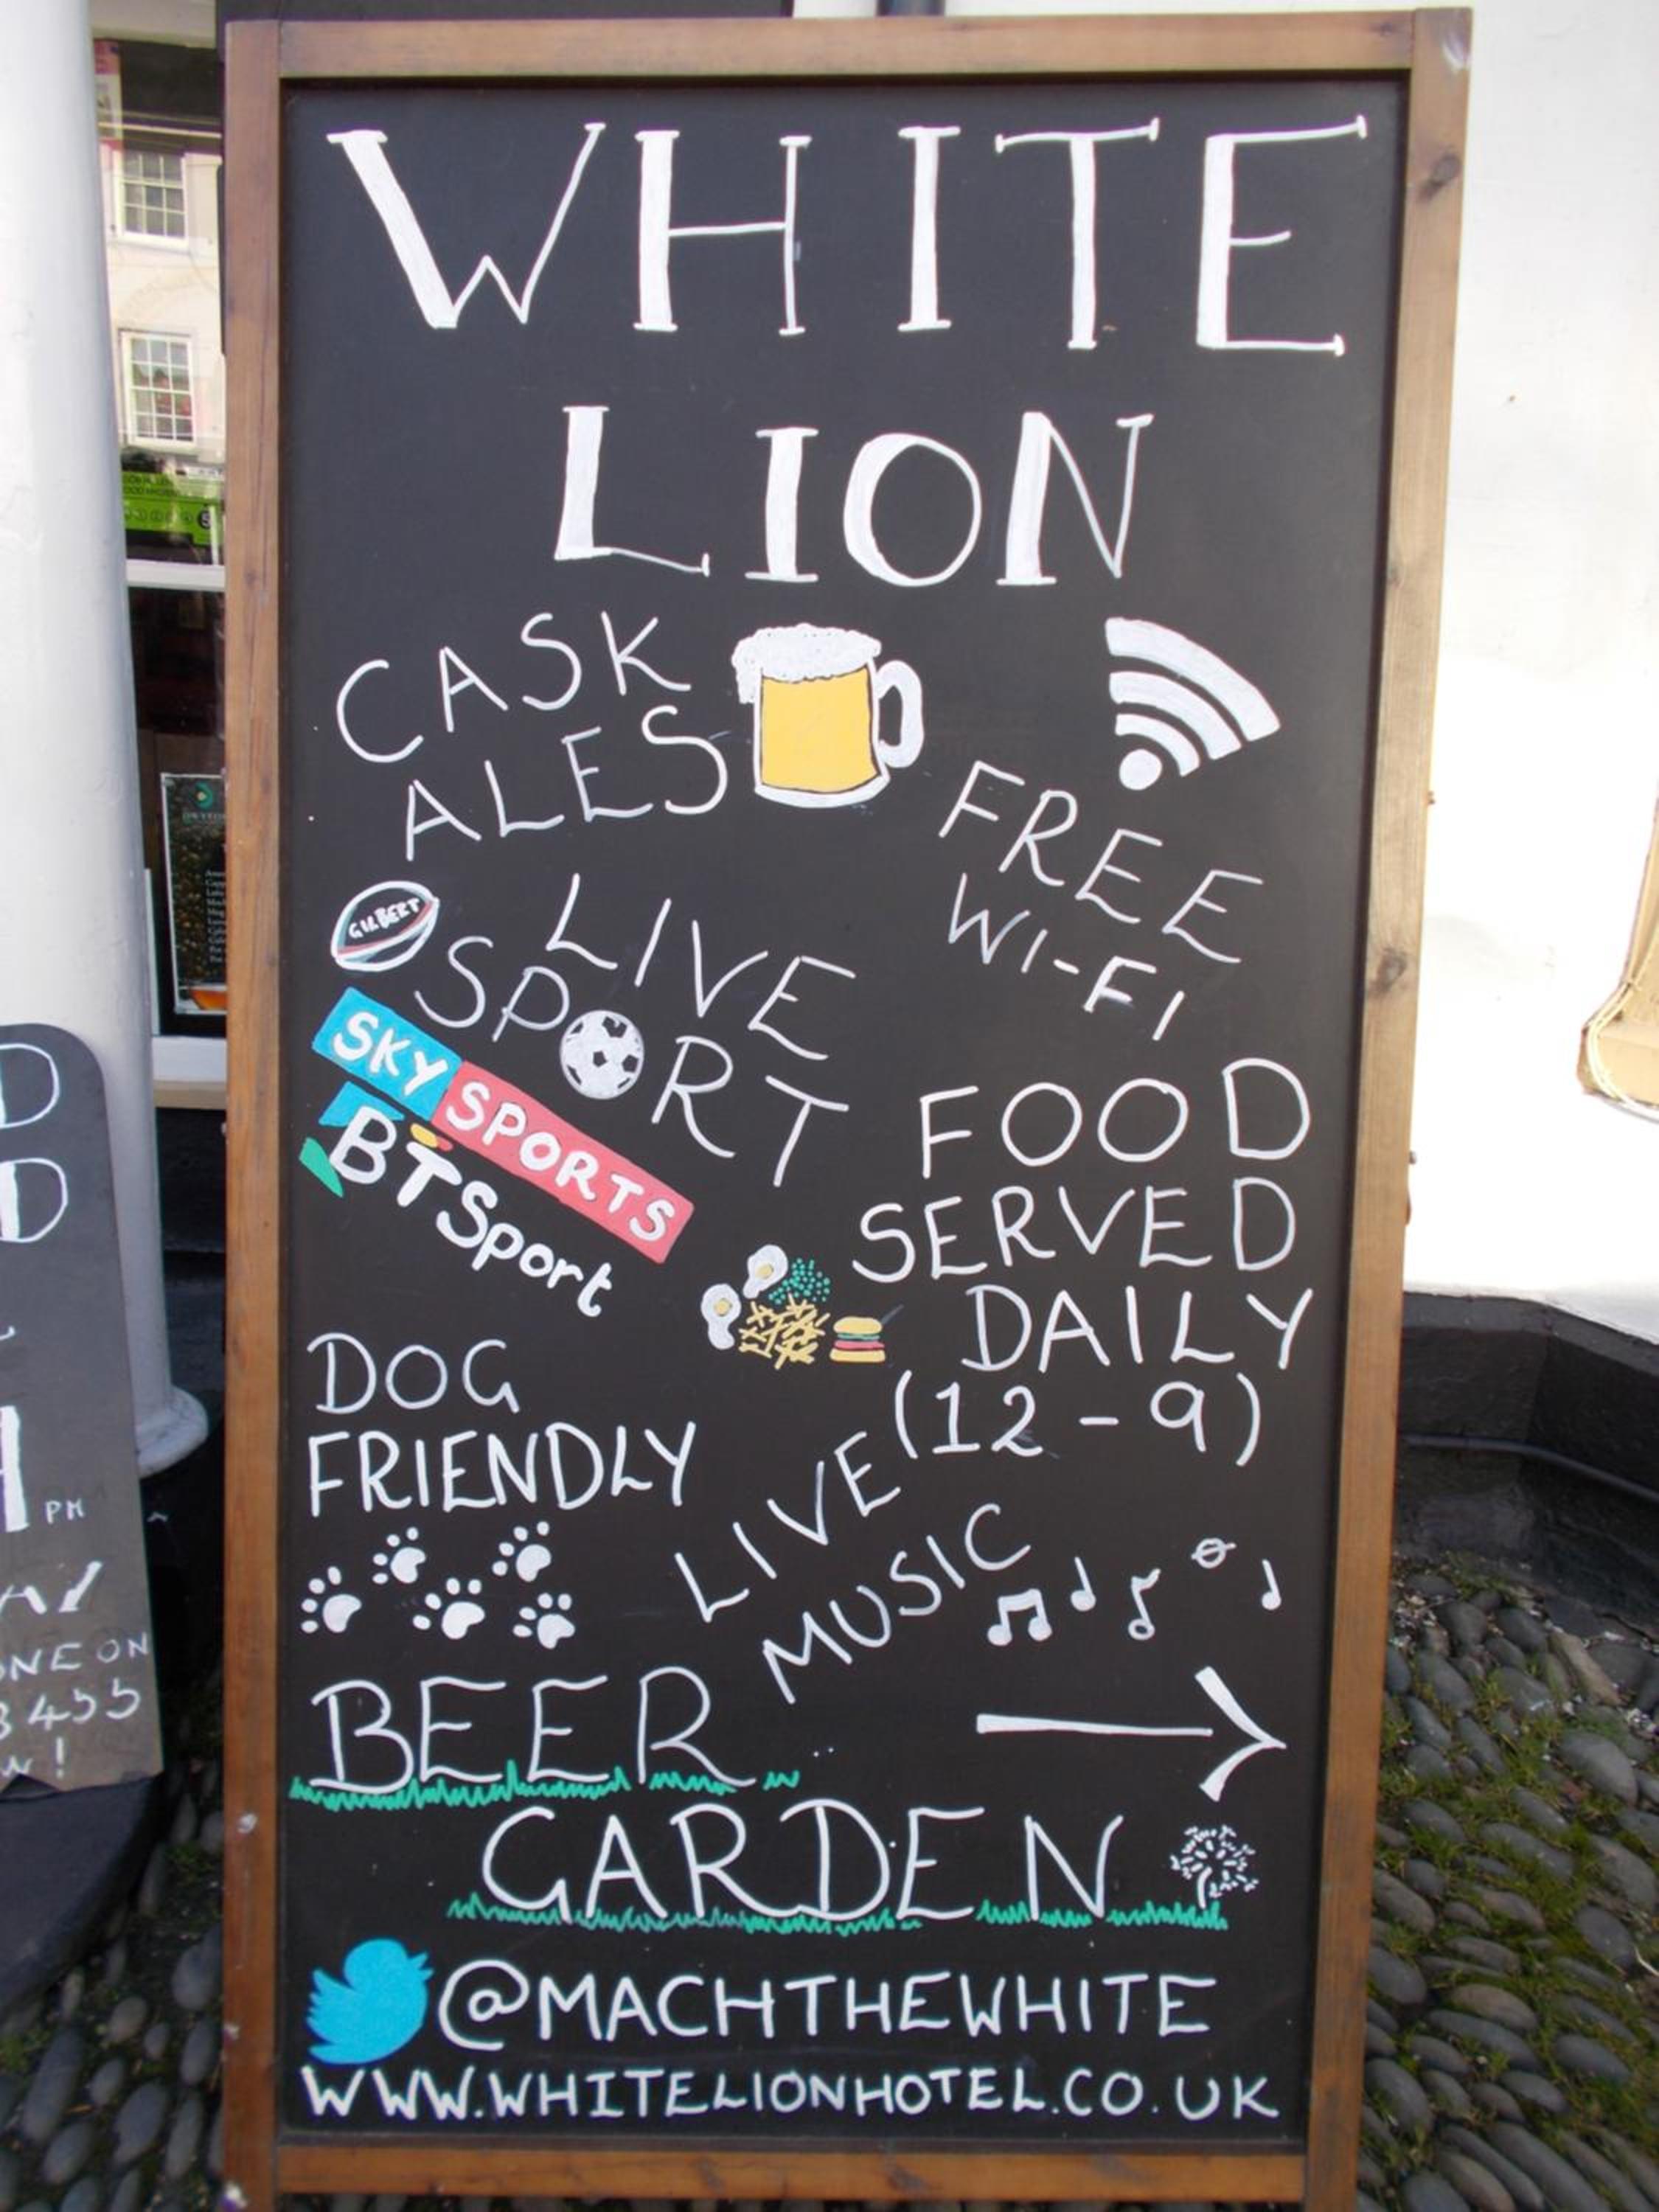 WHITE
LION
CASK
ALES
FREE
WI-FI
GILBERT
LIVE
SPORT
SKY SPORTS
BT Sport
FOOD
SERVED
DAILY
(12-9)
DOG
FRIENDLY
LIVE
MUSIC
BEER
GARDEN
@MACHTHEWHITE
WWW.WHITELIONHOTEL.CO.UK
D
D
PM
NE ON
3455